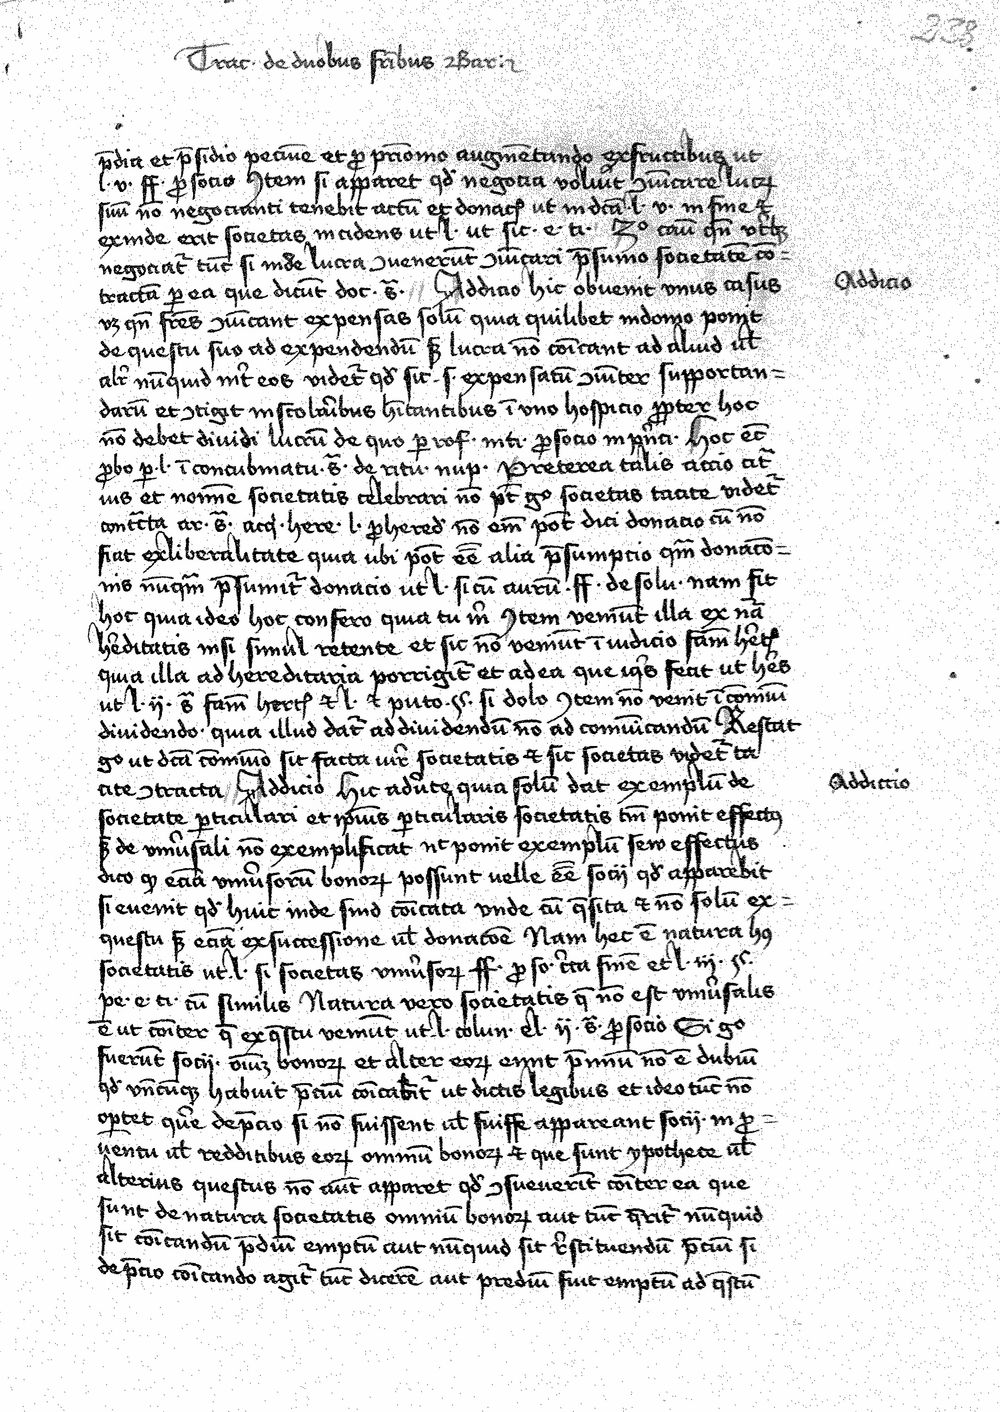 238
Trac· de duobus fr̄ibus Bar:
p̄dia et p̄sidio pecūie et ꝑ prīomo augmētando ex fructibus ut
l· v· ff· ꝑ socio Item si apparet qđ negocia volūt ꝯīcare lucꝝ
suū nō negocianti tenebit̄ actū et donac̄ ut in dc̄a l· v· in fine ⁊
exinde erit societas incidens ut l· ut sic· e· ti· 3º caū qn̄ vtꝰqꝫ
negociat̄ tūc si inde lucra ꝯuenerūt ꝯīcari p̄sumo societatē cō=
tractā ꝑ ea que dicūt doc· s̄· Addicio hic obuenit vnus casus
vꝫ qn̄ fr̄es ꝯīcant expensas solū quia quilibet in domo ponit
de questu suo ad expendendū sꝫ lucra nō cōicant ad aliud ul̄
alr̄ nūquid int̄ eos videt̄ qđ sit· s· expensarū ꝯīter supportan=
darū et ꝯtigit in scolarībus h̄itantibus ī vno hospicio ꝓpter hoc
nō debet diuidi lucrū de quo ꝑ rof· in ti· ꝓ socio in pn̄ci· Hoc ec̄
ꝓbo ꝑ l· ī concubinatu· s̄· de ritu· nup· Preterea talis actio cit̄
ius et nomē societatis celebrari nō pt̄ gº societas tacite videt̄
cont̄cta ar· s̄· acq̄· here· l· ꝓ hered̄ nō em̄ pot̄ dici donacio cū nō
fiat ex liberalitate quia ubi pot̄ ēē alia p̄sumpcio qm̄ donacō=
nis nūqm̄ p̄sumit̄ donacio ut l· si cū aurū· ff· de solu· nam sit
hoc quia ideo hoc confero quia tu m̄ Item veniūt illa ex nā
hēditatis nisi simul retente et sic nō veniūt ī iudicio fam̄ her̄c̄
quia illa ad hereditaria porrigit̄ et ad ea que iq̄s fecit ut her̄s
ut l· ij· s̄ fam̄ herc̄ ⁊ l· ⁊ puto· §· si dolo Item nō venit ī comuī
diuidendo· quia illud dat̄ ad diuidendū nō ad comūicandū Restat
gº ut dc̄a comūio sit facta iur̄ societatis ⁊ sic societas videt̄ ta
cite ꝯtracta Addicio Hic aduꝰte quia solū dat exemplū de
societate ꝑticulari et ipīus ꝑticularis societatis tm̄ ponit effectꝰ
sꝫ de vniūsali nō exemplificat nc̄ ponit exemplū seu effectus
dico ꝙ eciā vniūsorū bonoꝝ possunt uelle ēē socij qđ apparebit
si euenit qđ huic inde sind cōicata vnde cū q̄sita ⁊ nō solū ex=
questu sꝫ eciā ex successione ul̄ donacōe Nam hec ē natura hꝰ
societatis ut l· si societas vniūsoꝝ ff· ꝓ so· c̄ca finē et l· iij· §·
pe· e· ti· cū similis Natura vero societatis q̄ nō est vniūsalis
ē ut cōiter q̄ ex q̄stu veniūt ut l· colun· el· ij· s̄· ꝓ socio Si gº
fuerūt socij· oīūꝫ bonoꝝ et alter eoꝝ emit p̄mīū nō ē dubiū
qđ vn̄cūqꝫ habuit p̄ciū cōicabit̄ ut dictis legibus et ideo tūc nō
oportet quē de p̄cio si nō fuissent ul̄ fuisse appareant socij· in ꝓ=
uentu ul̄ redditibus eoꝝ omniū bonoꝝ ⁊ que sunt ypothece ul̄
alterius questus nō aūt apparet qđ ꝯsueuerīt cōiter ea que
sunt de natura societatis omniū bonoꝝ aut tūc q̄rit̄ nūquid
sit cōicandū p̄diū emptū aut nūquid sit rēstituendū p̄ciū si
de p̄cio cōicando agit̄ tūc dicerē aut prediū fuit emptū ad q̄stū
Addicio
Addiccio